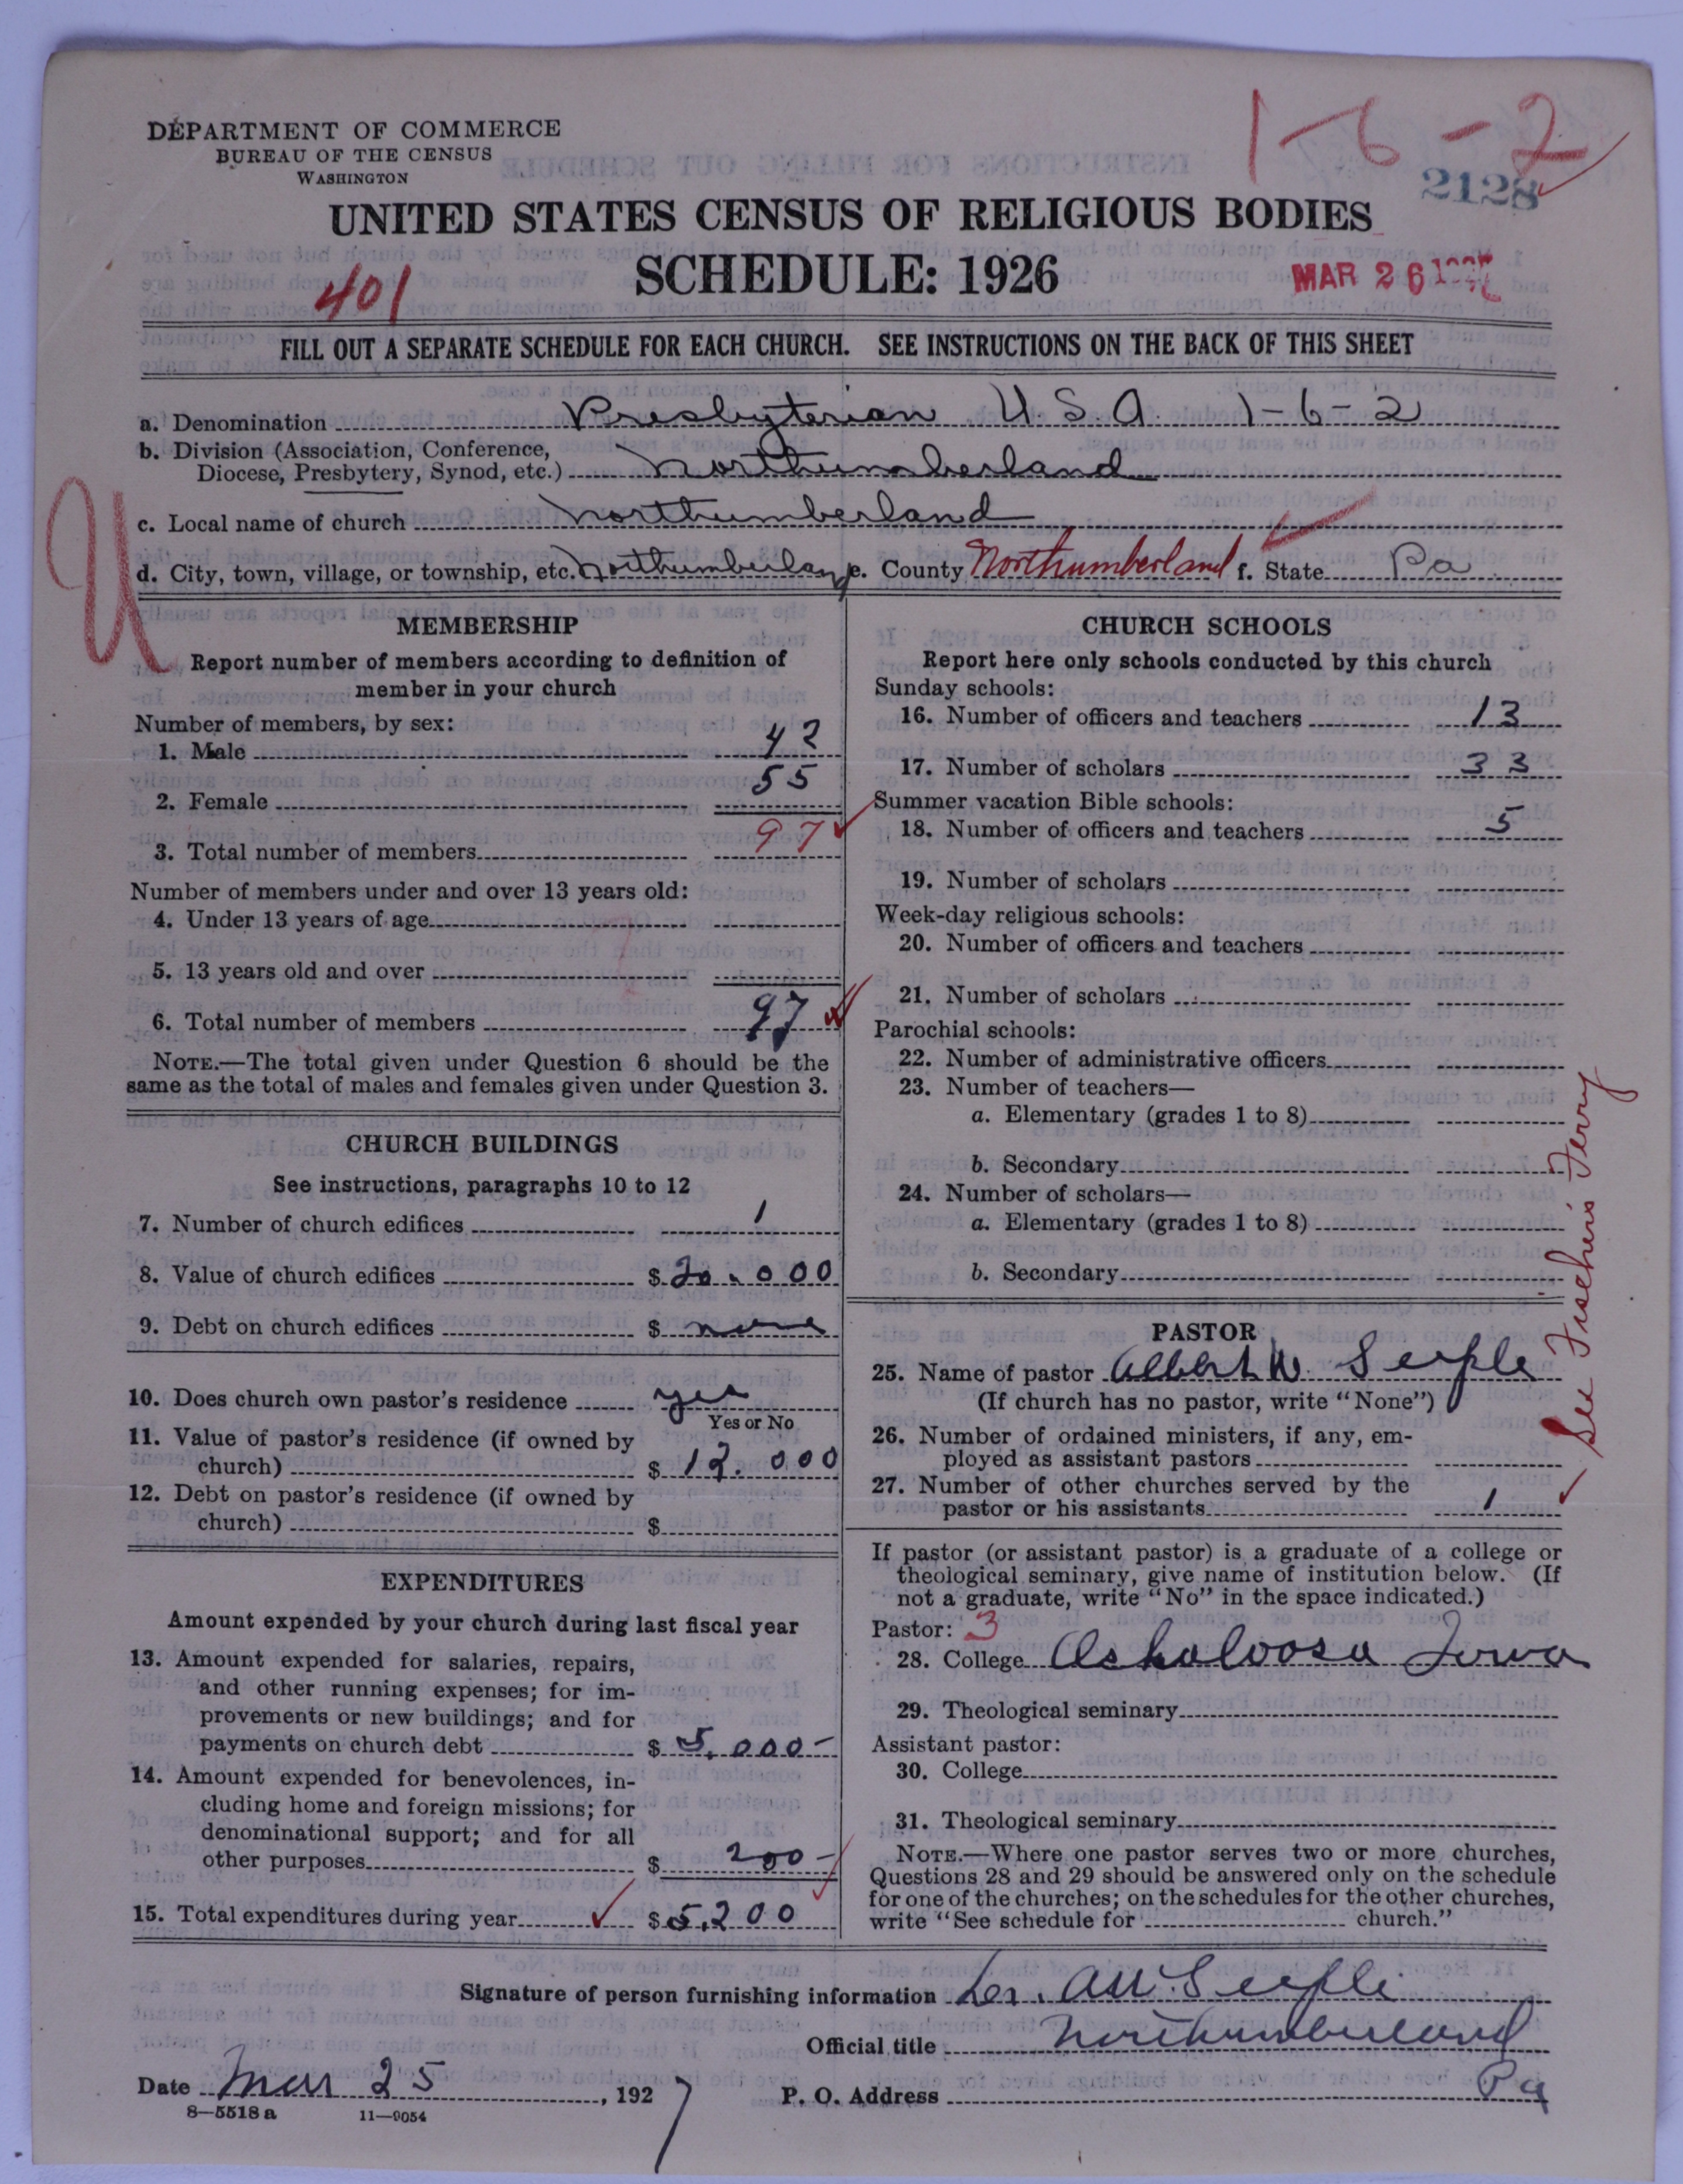 1-6-2
DEPARTMENT OF COMMERCE
BUREAU OF THE CENSUS
WASHINGTON
2128
UNITED STATES CENSUS OF RELIGIOUS BODIES
SCHEDULE: 1926
401
MAR 26 1927
FILL OUT A SEPARATE SCHEDULE FOR EACH CHURCH. SEE INSTRUCTIONS ON THE BACK OF THIS SHEET
a. Denomination Presbyterian U.S.A. 1-6-2
b. Division (Association, Conference,
Diocese, Presbytery, Synod, etc.) Northumberland
c. Local name of church Northumberland
d. City, town, village, or township, etc. Northumberland e. County Northumberland f. State Pa
U
MEMBERSHIP
Report number of members according to definition of
member in your church
Number of members, by sex:
1. Male 42
2. Female 55
3. Total number of members 97
Number of members under and over 13 years old:
4. Under 13 years of age
5. 13 years old and over
6. Total number of members 97
NOTE.—The total given under Question 6 should be the
same as the total of males and females given under Question 3.
CHURCH BUILDINGS
See instructions, paragraphs 10 to 12
7. Number of church edifices 1
8. Value of church edifices $ 20.000
9. Debt on church edifices $ none
10. Does church own pastor's residence yes
Yes or No
11. Value of pastor's residence (if owned by
church) $ 12.000
12. Debt on pastor's residence (if owned by
church) $
EXPENDITURES
Amount expended by your church during last fiscal year
13. Amount expended for salaries, repairs,
and other running expenses; for im-
provements or new buildings; and for
payments on church debt $ 5,000-
14. Amount expended for benevolences, in-
cluding home and foreign missions; for
denominational support; and for all
other purposes $ 200-
15. Total expenditures during year $ 5,200
CHURCH SCHOOLS
Report here only schools conducted by this church
Sunday schools:
16. Number of officers and teachers 13
17. Number of scholars 33
Summer vacation Bible schools:
18. Number of officers and teachers 5
19. Number of scholars
Week-day religious schools:
20. Number of officers and teachers
21. Number of scholars
Parochial schools:
22. Number of administrative officers
23. Number of teachers—
a. Elementary (grades 1 to 8)
b. Secondary
24. Number of scholars—
a. Elementary (grades 1 to 8)
b. Secondary
PASTOR
25. Name of pastor Albert W. Seiple
(If church has no pastor, write "None")
26. Number of ordained ministers, if any, em-
ployed as assistant pastors
27. Number of other churches served by the
pastor or his assistants 1
See Fisher's Ferry
If pastor (or assistant pastor) is a graduate of a college or
theological seminary, give name of institution below. (If
not a graduate, write "No" in the space indicated.)
Pastor: 3
28. College Oskaloosa Iowa
29. Theological seminary
Assistant pastor:
30. College
31. Theological seminary
NOTE.—Where one pastor serves two or more churches,
Questions 28 and 29 should be answered only on the schedule
for one of the churches; on the schedules for the other churches,
write "See schedule for church."
Signature of person furnishing information A.W. Seiple
Official title Northumberland
Date Mar 25, 1927 P. O. Address Pa
8—5518 a 11—9054